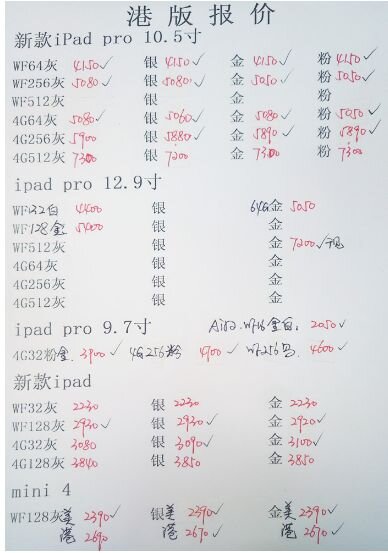 港版报价
新款iPad pro 10.5寸
WF64灰 4150✓ 银 4150✓ 金 4150✓ 粉 4150✓
WF256灰 5080✓ 银 5080✓ 金 5050✓ 粉 5050✓
WF512灰 银 金 粉
4G64灰 5080✓ 银 5060✓ 金 5080✓ 粉 5050✓
4G256灰 5900 银 5880✓ 金 5890✓ 粉 5890✓
4G512灰 7300 银 7200 金 7300 粉 7300
ipad pro 12.9寸
WF32白 4400 银 64G金 5050
WF128金 5400 银 金
WF512灰 银 金 7200✓
4G64灰 银 金
4G256灰 银 金
4G512灰 银 金
ipad pro 9.7寸 Air2.WF16金白: 2050✓
4G32粉金. 3900✓ 4G256粉 4900✓ WF256 4600✓
新款ipad
WF32灰 2230 银 2230 金 2230
WF128灰 2930✓ 银 2930✓ 金 2920✓
4G32灰 3080 银 3090✓ 金 3100✓
4G128灰 3840 银 3850 金 3850
mini 4
WF128灰美 2390✓ 银美 2390✓ 金美 2390✓
港 2690 港 2670✓ 港 2670✓